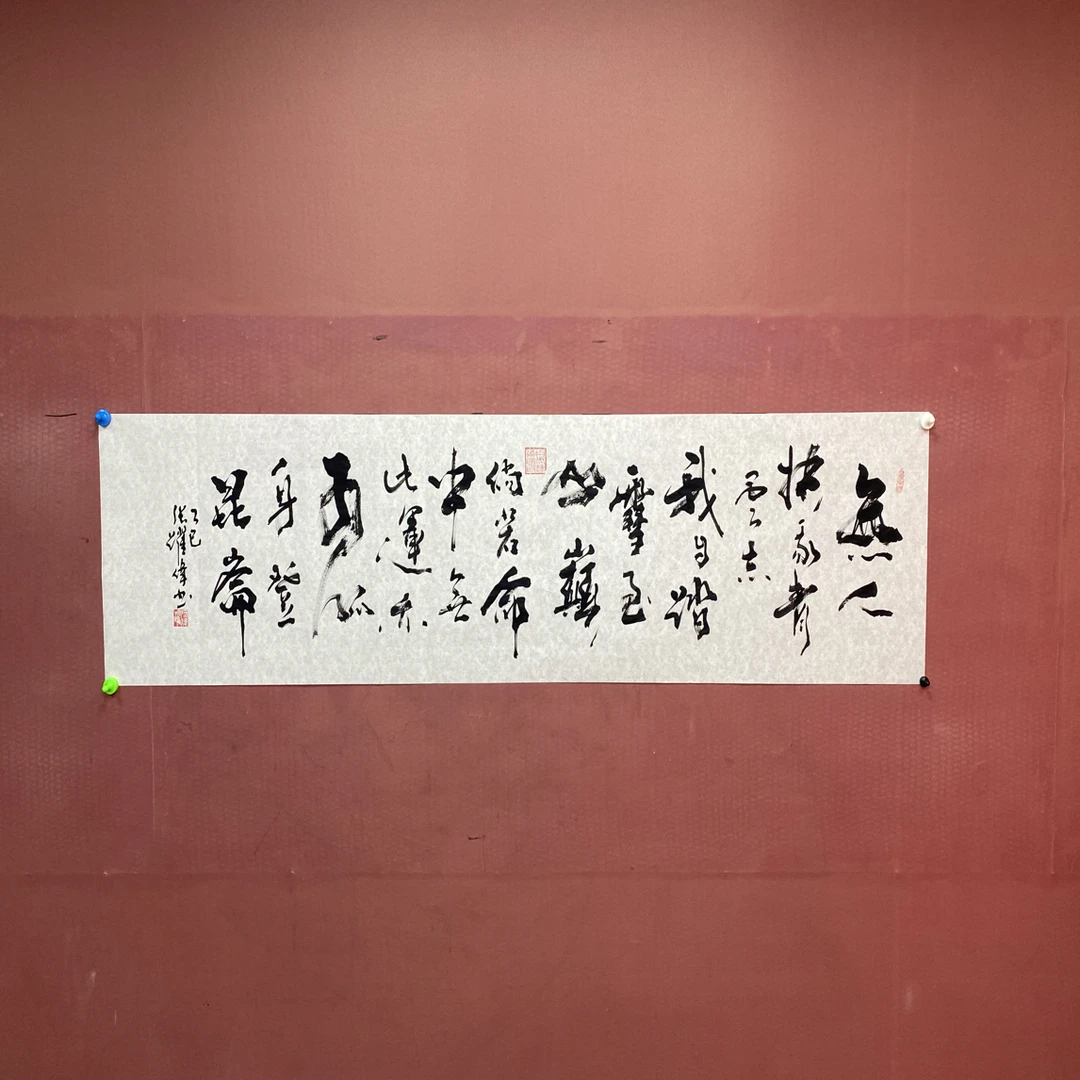 無人
扶我青
雲志
我自踏
雪至
山巔
倘若命
中無
此運亦
孤
身登
昆崙
乙巳
張耀偉书